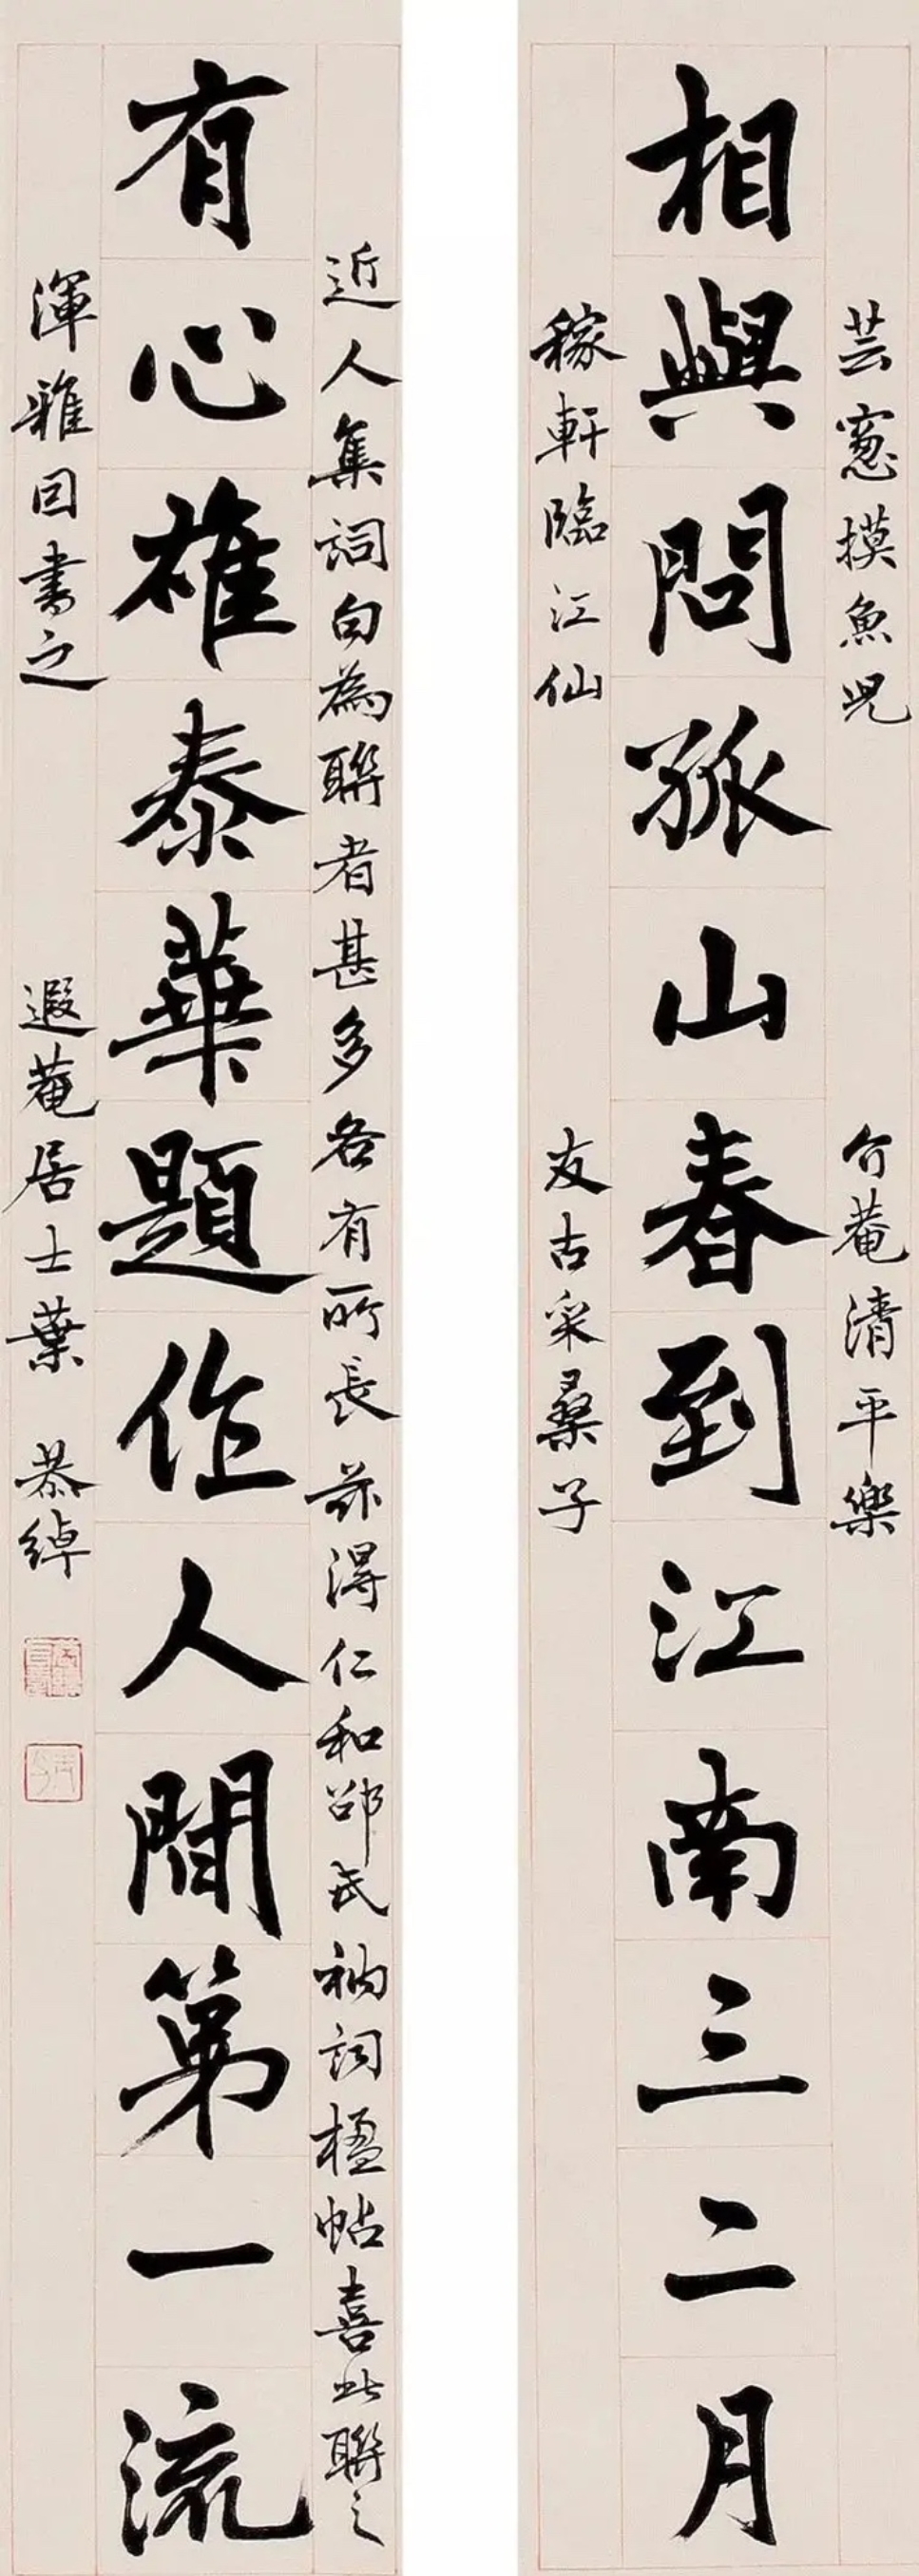 芸窗摸魚兒 介菴清平樂
相與問孤山春到江南三二月
稼軒臨江仙 友古采桑子
近人集詞句為聯者甚多各有所長茲得仁和邵氏衲詞楹帖喜此聯之
有心雄泰華題作人間第一流
渾雅因書之 遐菴居士葉恭綽